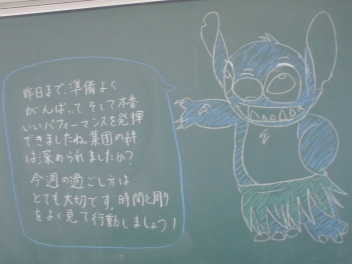 昨日まで、準備よく
がんばって そして本番
いいパフォーマンスを発揮
できましたね。集団の絆
は深められましたか?
今週の過ごし方は
とても大切です。時間と周り
をよく見て行動しましょう!